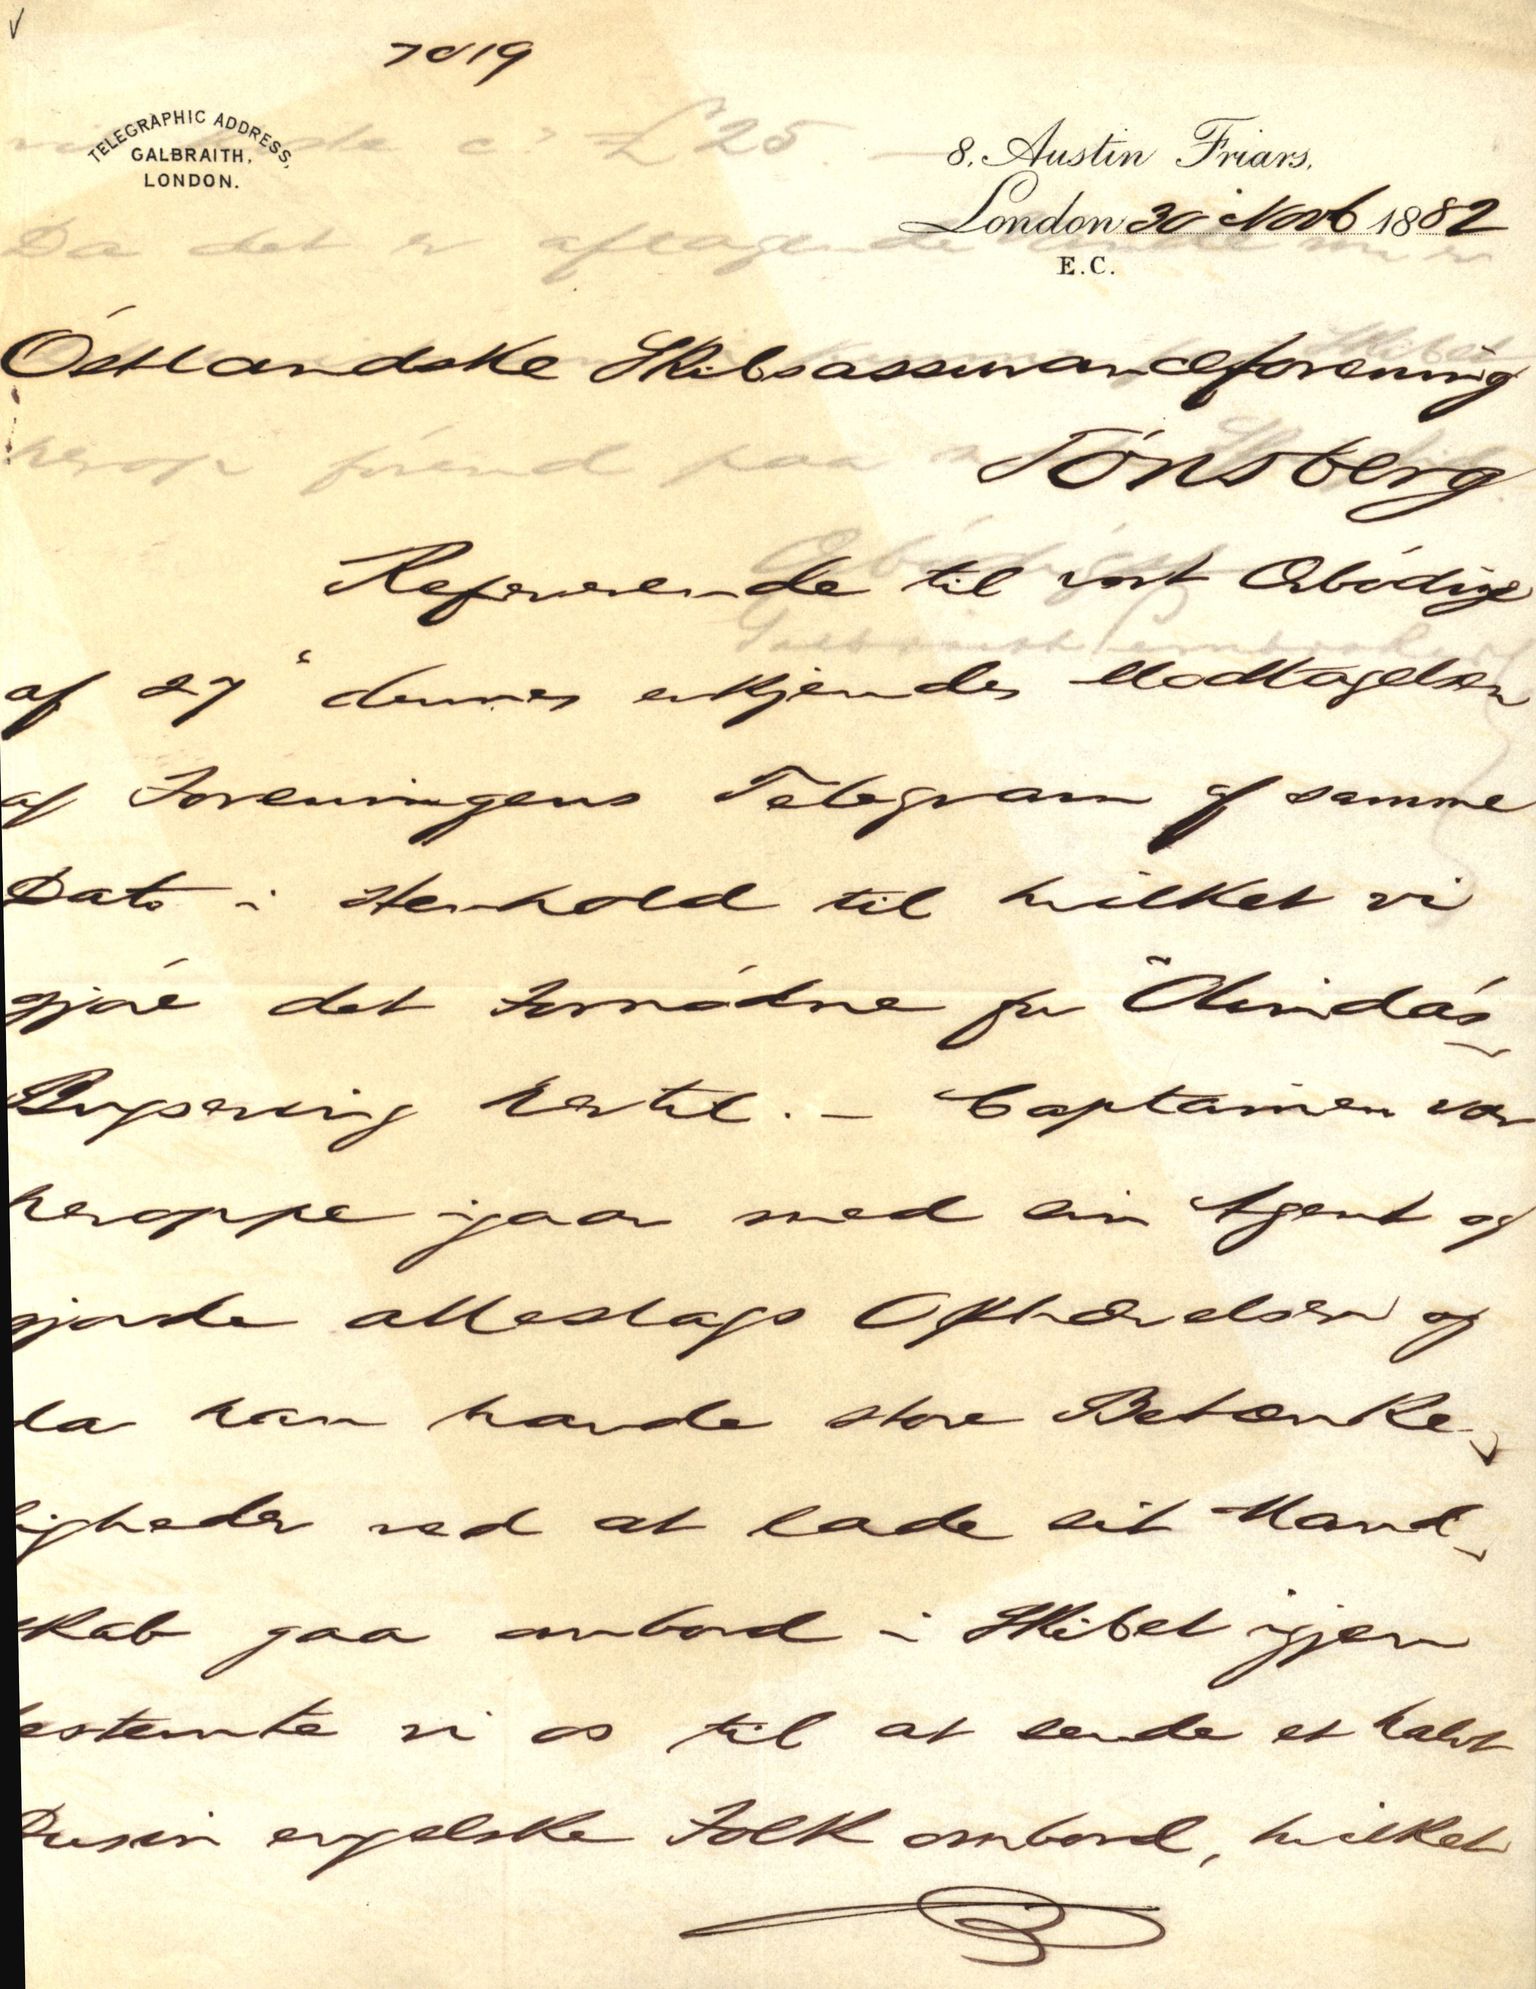 7819
TELEGRAPHIC ADDRESS,
GALBRAITH,
LONDON.
8, Austin Friars,
London 30 Novb 1882
E.C.
Östlandske Skibsassuranceforening
Tönsberg
Refererende til vort Erbödige
af 27' dennes erkjendes Modtagelsen
af Foreningens Telegram af samme
Dato i Henhold til hvilket vi
gjöre det Fornödne for "Olinda's
Bugsering hertil. – Captainen var
heroppe igaar med sin Agent og
gjorde alleslags Ophævelser og
da han havde store Betænke-
ligheder ved at lade sit Mand-
skab gaa ombord i Skibet igjen
bestemte vi os til at sende et halvt
Dusin engelske Folk ombord, hvilket